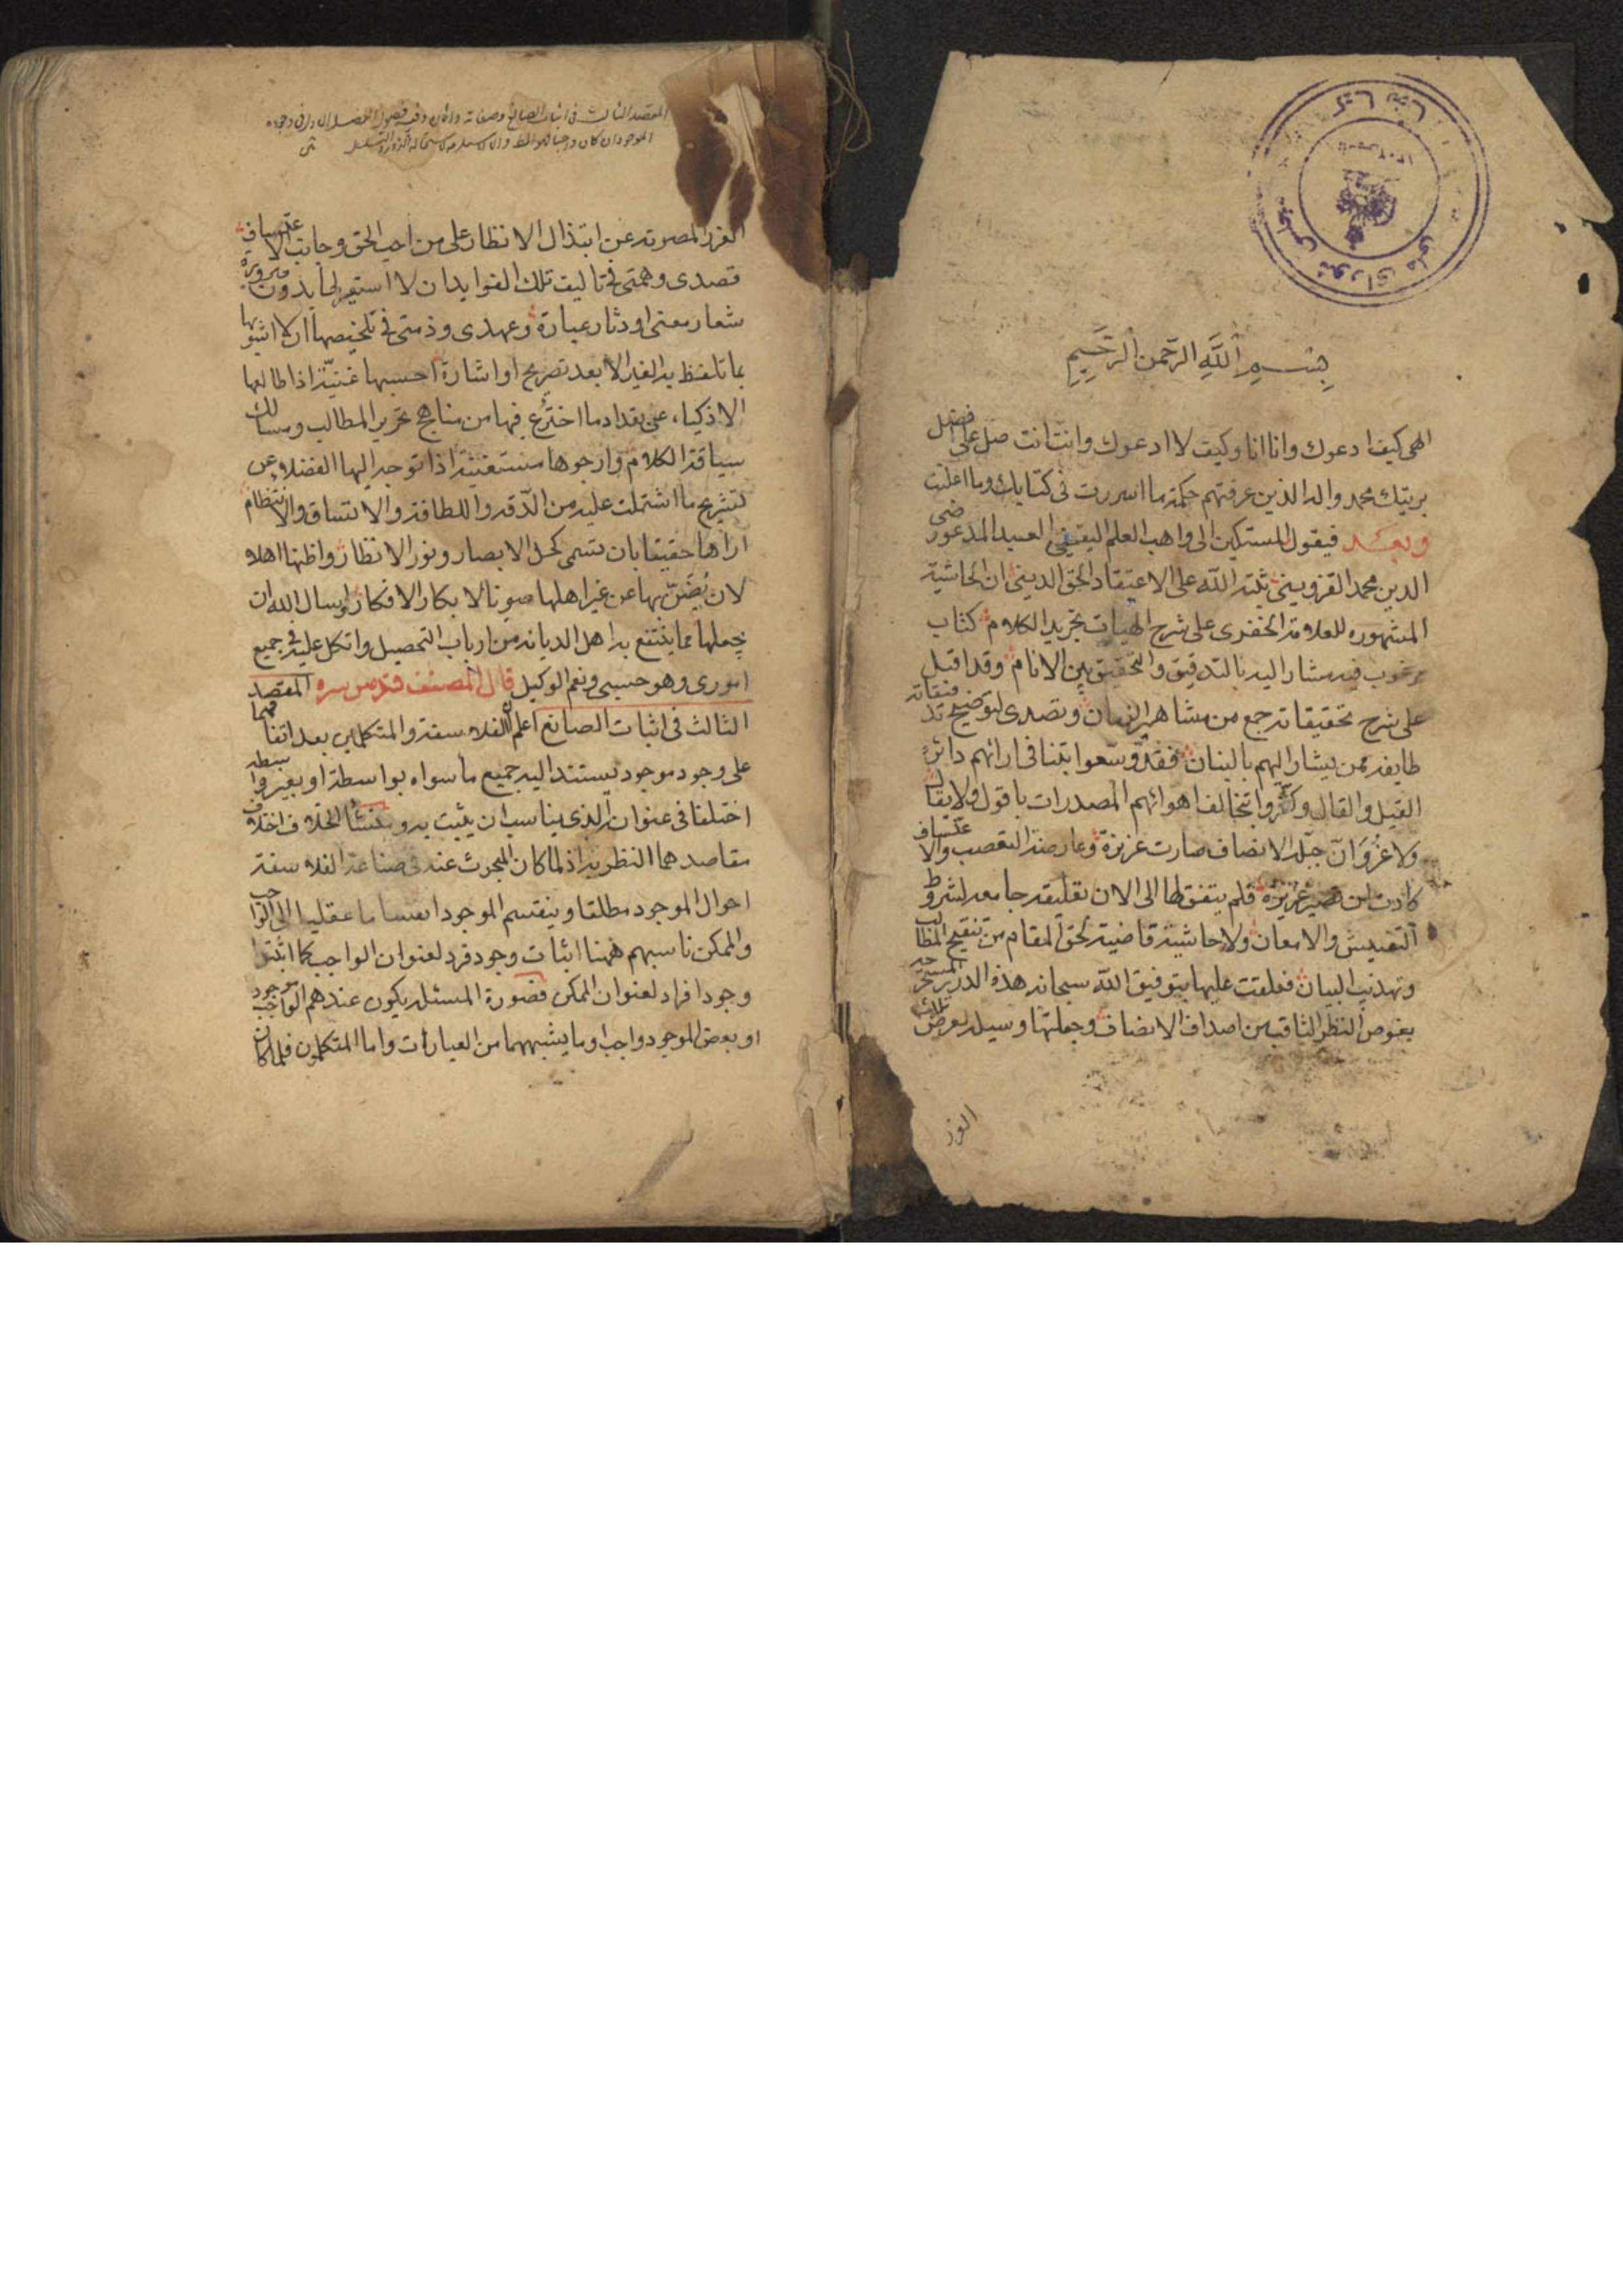 بِسْمِ اللَّهِ الرَّحْمنِ الرَّحِيمِ
الهی کیف ادعوك وانا انا وکیف لا ادعوك وانت انت صل علی افضل
بریتك محمد واله الذین عرفتهم حکمة ما اسررت فی کتابك وما اعلنت
وبعد فیقول المستکین الی واهب العلم الیقینی العبد المدعو رضی
الدین محمد القزوینی ثبته الله علی الاعتقاد الحق الدینی ان الحاشیة
المشهوره للعلامة الخفری علی شرح الهیات تجرید الکلام کتاب
مرغوب فیه مشار الیه بالتدقیق والتحقیق بین الانام وقد اقبل
علی شرح تحقیقاته جمع من مشاهیر الزمان وتصدی لتوضیح تدقیقاته
طایفة ممن یشار الیهم بالبنان فقد وسعوا بتنافی ارائهم دائرة
القیل والقال وکثروا بتخالف اهوائهم المصدرات باقول ولا یقال
ولا غرو ان جبلة الانصاف صارت عزیزة وعارضة التعصب والاعتساف
کادت ان تصیر غریزة فلم یتفق لها الی الان تعلیقة جامعة لشروط
التفتیش والامعان ولا حاشیة قاضیة لحق المقام من تنقیح المطالب
وتهذیب البیان فعلقت علیها بتوفیق الله سبحانه هذه الدرر المستخرجة
بغوص النظر الثاقب من اصداف الانصاف وجعلتها وسیلة لعرض تلك
الغرر
المقصد الثالث فی اثبات الصانع وصفاته واثاره وفیه فصول الفصل الاول فی وجوده
الموجود ان کان واجبا فهو المط والا استلزمه لاستحالة الدور والتسلسل
الغرر المصونة عن ابتذال الانظار علی من احب الحق وجانب الاعتساف
قصدی وهمتی فی تالیف تلك الفواید ان لا استعیر لها بدون ضرورة
شعار معنی او دثار عبارة وعهدی وذمتی فی تلخیصها ان لا اشوبها
بما تلفظ به الغیر الا بعد تصریح او اشارة احسبها غنیة اذا طالعها
الاذکیاء عن تعداد ما اخترع فیها من مناهج تحریر المطالب ومسالك
سیاقة الکلام وارجوها مستغنیة اذا توجه الیها الفضلاء عن
تشریح ما اشتملت علیه من الدقة واللطافة والاتساق والانتظام
اراها حقیقا بان تسمی کحل الابصار ونور الانظار واظنها اهلا
لان یُضَنّ بها عن غیر اهلها صونا لابکار الافکار واسال الله ان
یجعلها مما ینتفع به اهل الدیانة من ارباب التحصیل واتکل علیه فی جمیع
اموری وهو حسبی ونعم الوکیل قال المصنف قدس سره المقصد
الثالث فی اثبات الصانع اعلم ان الفلاسفة والمتکلمین بعد اتفاقهما
علی وجود موجود یستند الیه جمیع ما سواه بواسطة او بغیر واسطة
اختلفا فی عنوان الذی یناسب ان یثبت به ومنشأ الخلاف اختلاف
مقاصدهما النظریة اذ لما کان المبحوث عنه فی صناعة الفلاسفة
احوال الموجود مطلقا وینقسم الموجود انقساما عقلیا الی الواجب
والممکن ناسبهم ههنا اثبات وجود فرد لعنوان الواجب کما اثبتوا
وجود افراد لعنوان الممکن فصورة المسئلة یکون عندهم الواجب موجود
او بعض الموجود واجب او ما یشبههما من العبارات واما المتکلمون فلما کان